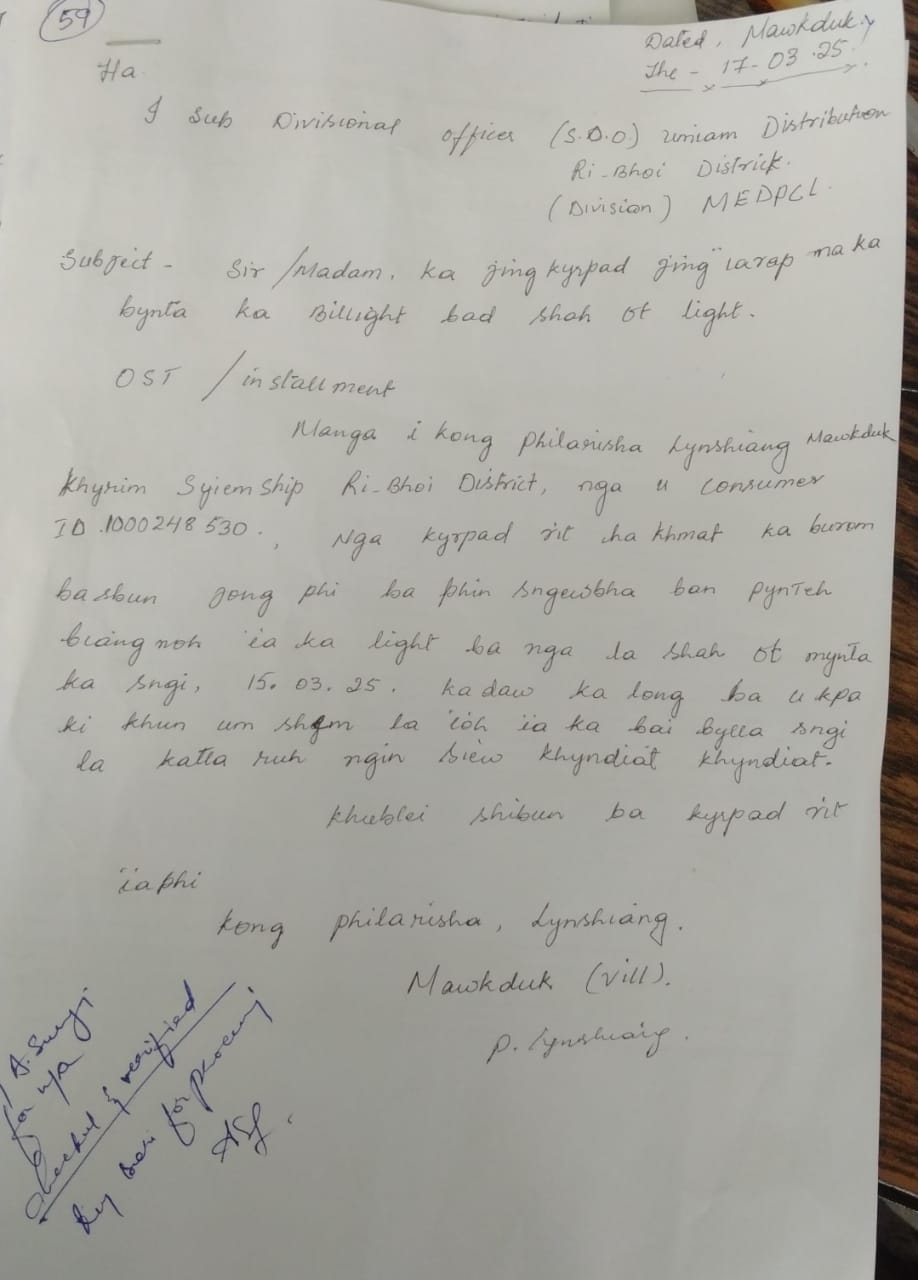 59
Dated, Mawkduk,
The - 17-03-25.
Ha
I Sub Divisional officer (S.D.O) umiam Distribution
Ri-Bhoi District.
(Division) MEDPCL.
Subject - Sir/Madam, ka jingkyrpad jing ïarap na ka
bynta ka Billight bad shah ot light.
OST / installment
Manga i kong Philarisha Lynshiang Mawkduk
Khyrim Syiemship Ri-Bhoi District, nga u consumer
ID.1000248530., Nga kyrpad rit ha khmat ka burom
basbun jong phi ba phin sngewbha ban pynTeh
biang noh ïa ka light ba nga la shah ot mynta
ka sngi, 15.03.25. kadaw ka long ba u kpa
ki khun um shym la ïoh ïa ka bai bylla sngi
la katta ruh ngin siew khyndiat khyndiat.
khublei shibun ba kyrpad rit
ïaphi
kong philarisha, Lynshiang.
Mawkduk (vill).
P. Lynshiang.
for n/a
Checked & verified
for